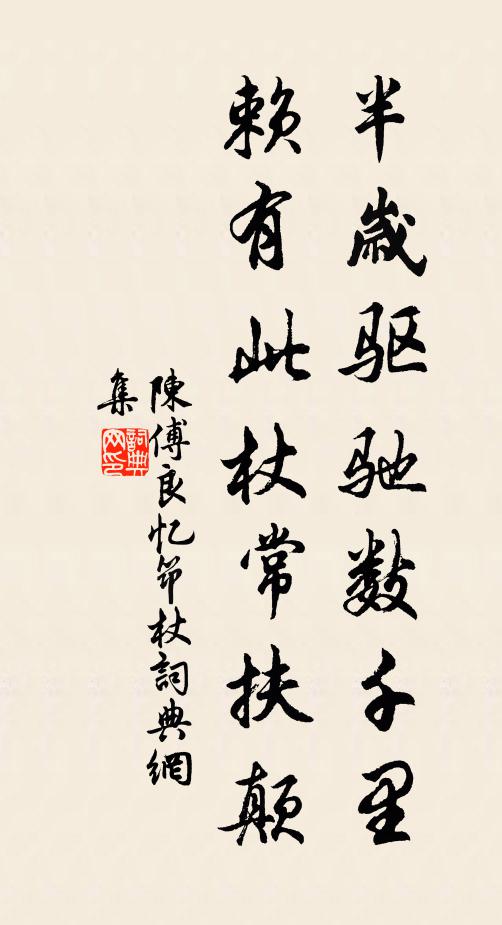 半歲驱驰数千里
赖有此杖常扶颠
陳傅良忆筇杖詞典網
集
詞典网印